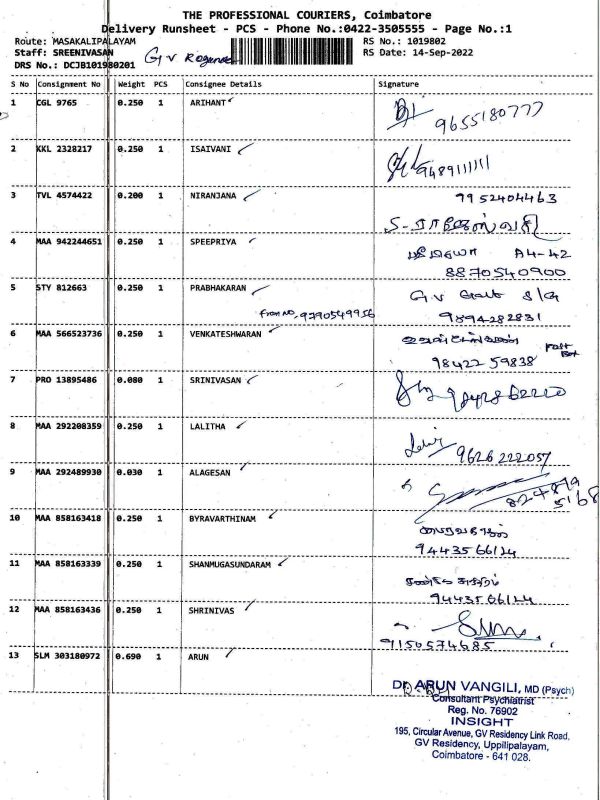 THE PROFESSIONAL COURIERS, Coimbatore
Delivery Runsheet - PCS - Phone No.:0422-3505555 - Page No.:1
Route: MASAKALIPALAYAM RS No.: 1019802
Staff: SREENIVASAN G V RS Date: 14-Sep-2022
DRS No.: DCJB101980201
S No Consignment No Weight PCS Consignee Details Signature
1 CGL 9765 0.250 1 ARIHANT
9655180777
2 KKL 2328217 0.250 1 ISAIVANI
9489111111
3 TVL 4574422 0.200 1 NIRANJANA 9952404463
4 MAA 942244651 0.250 1 SPEEPRIYA A4-42
8870540900
5 STY 812663 0.250 1 PRABHAKARAN G V S/G
9790549956 9894282831
6 MAA 566523736 0.250 1 VENKATESHWARAN
9842259838
7 PRO 13895486 0.080 1 SRINIVASAN
8 MAA 292208359 0.250 1 LALITHA
9626222057
9 MAA 292489930 0.030 1 ALAGESAN
10 MAA 858163418 0.250 1 BYRAVARTHINAM
11 MAA 858163339 0.250 1 SHANMUGASUNDARAM
12 MAA 858163436 0.250 1 SHRINIVAS
9150574685
13 SLM 303180972 0.690 1 ARUN
Dr. ARUN VANGILI, MD (Psych)
Consultant Psychiatrist
Reg. No. 76902
INSIGHT
195, Circular Avenue, GV Residency Link Road,
GV Residency, Uppilipalayam,
Coimbatore - 641 028.